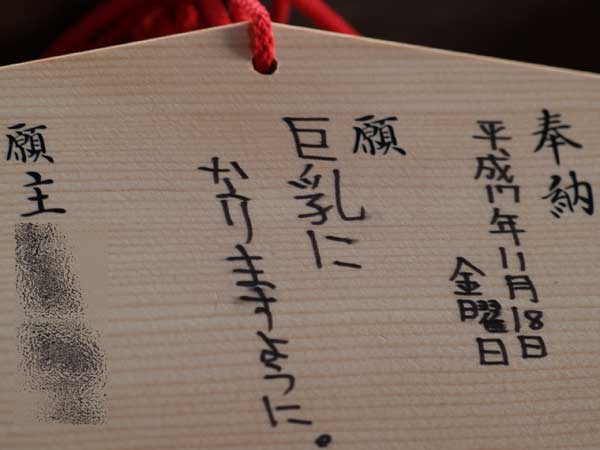 奉納
平成17年11月18日
金曜日
願
巨乳に
なりますように。
願主